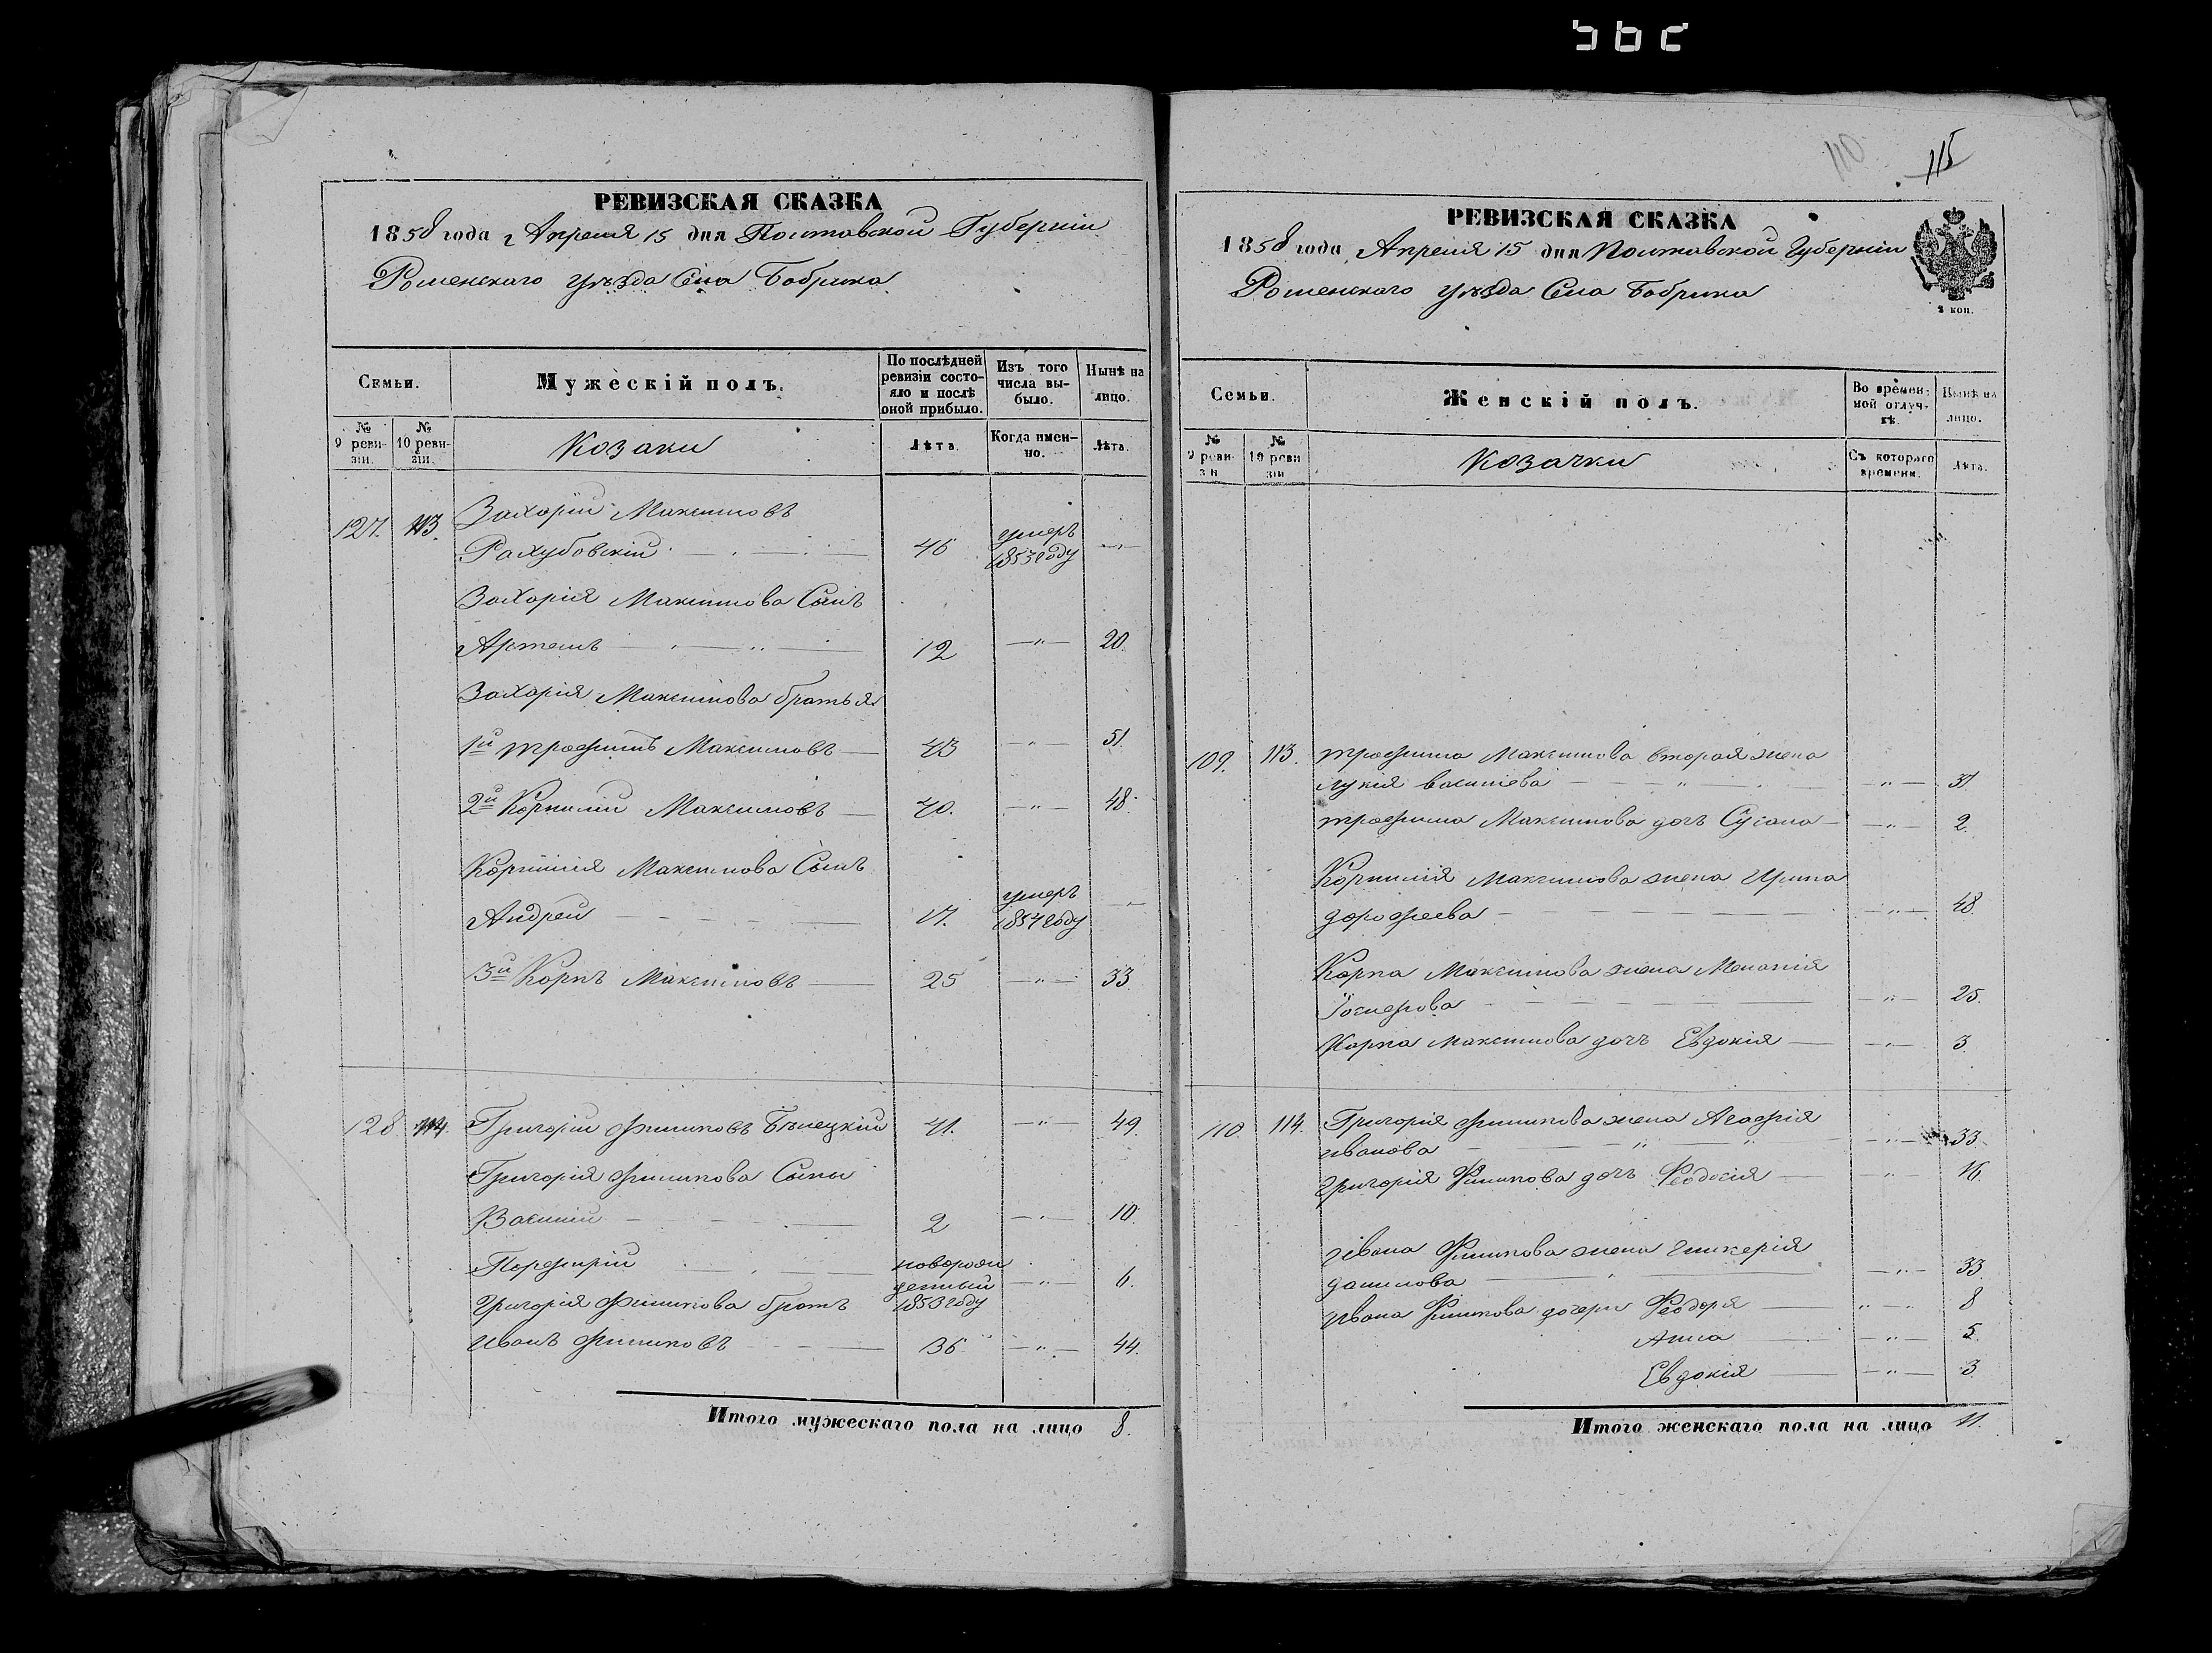 РЕВИЗСКАЯ СКАЗКА
1858 года Апреля 15 дня Полтавской Губерніи
Роменскаго уѣзда Села Бобрика
Семьи.
Мужескій полъ.
По послѣдней ревизіи состояло и послѣ оной прибыло.
Изъ того числа выбыло.
Нынѣ на лицо.
№ 9 ревизіи.
№ 10 ревизіи.
Козаки
Лѣта.
Когда именно.
Лѣта.
127. 113. Захарій Максимовъ
Рахубовскій 46 умеръ 1853 году
Захарія Максимова Сынъ
Артемъ 12 —„— 20.
Захарія Максимова братья
1й Трофимъ Максимовъ 43 —„— 51.
2й Корнилій Максимовъ 40. —„— 48.
Корнилія Максимова Сынъ
Андрей 17. умеръ 1857 году
3й Карпъ Максимовъ 25 —„— 33.
128 114. Григорій Филиповъ Бѣлецкій 41. —„— 49.
Григорія Филипова Сыны
Василій 2 —„— 10.
Порфирій новорожденный 1853 году —„— 6.
Григорія Филипова братъ
Иванъ Филиповъ 36 —„— 44.
Итого мужескаго пола на лицо 8.
110
115
РЕВИЗСКАЯ СКАЗКА
1858 года Апреля 15 дня Полтавской Губерніи
Роменскаго уѣзда Села Бобрика
2 коп.
Семьи.
Женскій полъ.
Во временной отлучкѣ.
Нынѣ на лицо.
№ 9 ревизіи
№ 10 ревизіи
Козачки
Съ котораго времени.
Лѣта.
109. 113. Трофима Максимова вторая жена
Лукія Василіева —„— 31
Трофима Максимова дочъ Сусана —„— 2.
Корнилія Максимова жена Ирина
Дорофеева —„— 48.
Карпа Максимова жена Меланія
Іосифова —„— 25.
Карпа Максимова дочъ Евдокія —„— 3.
110. 114. Григорія Филипова жена Агафія
Иванова —„— 33
Григорія Филипова дочъ Феодосія —„— 16.
Ивана Филипова жена Гликерія
Данилова —„— 33.
Ивана Филипова дочери Феодора —„— 8
Анна —„— 5.
Евдокія —„— 3.
Итого женскаго пола на лицо 11.